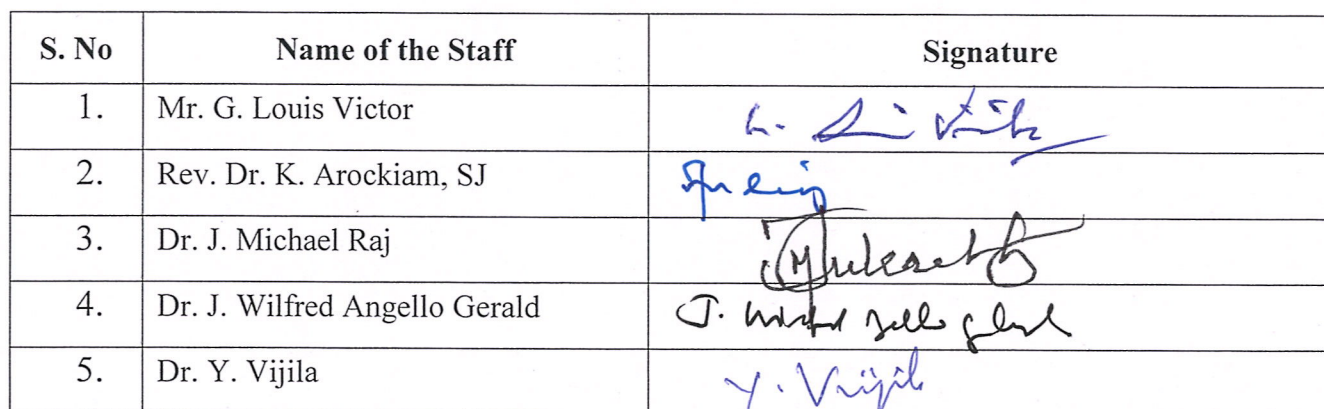 S. No Name of the Staff Signature
1. Mr. G. Louis Victor
2. Rev. Dr. K. Arockiam, SJ
3. Dr. J. Michael Raj
4. Dr. J. Wilfred Angello Gerald
5. Dr. Y. Vijila Y. Vijila